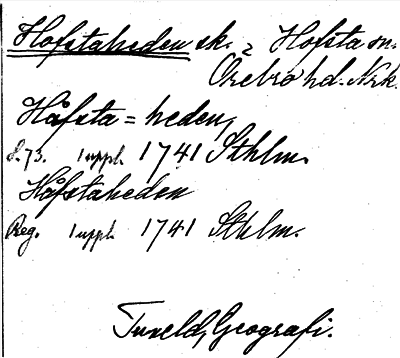 Hofstaheden sk. i Hofsta sn.
Örebro hd. Nrk.
Håfsta=heden,
S. 73. 1 uppl. 1741 Sthlm.
Håfstaheden
Reg. 1 uppl. 1741 Sthlm.
Tuneld, Geografi.